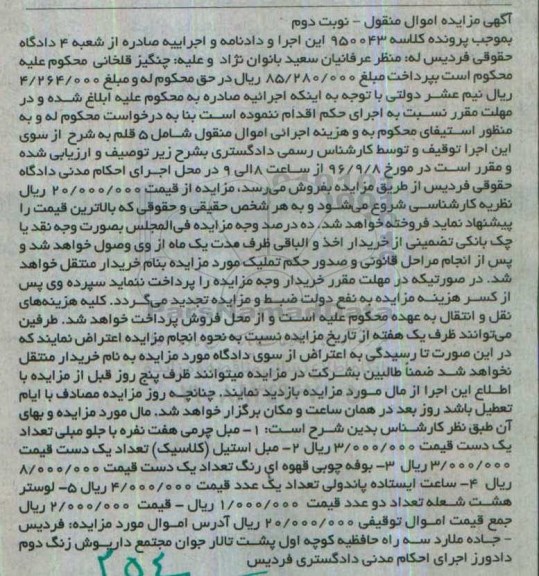 آگهی مزایده اموال منقول - نوبت دوم
بموجب پرونده کلاسه ۹۵۰۰۴۳ این اجرا و دادنامه و اجراییه صادره از شعبه ۴ دادگاه
حقوقی فردیس له: منظر عرفانیان سعید بانوان نژاد و علیه: چنگیز قلخانی محکوم علیه
محکوم است بپرداخت مبلغ ۸۵/۲۸۰/۰۰۰ ریال در حق محکوم له و مبلغ ۴/۲۶۴/۰۰۰
ریال نیم عشر دولتی با توجه به اینکه اجرائیه صادره به محکوم علیه ابلاغ شده و در
مهلت مقرر نسبت به اجرای حکم اقدام ننموده است بنا به درخواست محکوم له و به
منظور استیفای محکوم به و هزینه اجرائی اموال منقول شامل ۵ قلم به شرح از سوی
این اجرا توقیف و توسط کارشناس رسمی دادگستری بشرح زیر توصیف و ارزیابی شده
و مقرر است در مورخ ۹۶/۹/۸ از ساعت ۸الی ۹ در محل اجرای احکام مدنی دادگاه
حقوقی فردیس از طریق مزایده بفروش می‌رسد، مزایده از قیمت ۲۰/۰۰۰/۰۰۰ ریال
نظریه کارشناسی شروع می‌شود و به هر شخص حقیقی و حقوقی که بالاترین قیمت را
پیشنهاد نماید فروخته خواهد شد، ده درصد وجه مزایده فی‌المجلس بصورت وجه نقد یا
چک بانکی تضمینی از خریدار اخذ و الباقی ظرف مدت یک ماه از وی وصول خواهد شد و
پس از انجام مراحل قانونی و صدور حکم تملیک مورد مزایده بنام خریدار منتقل خواهد
شد. در صورتیکه در مهلت مقرر خریدار وجه مزایده را پرداخت ننماید سپرده وی پس
از کسر هزینه مزایده به نفع دولت ضبط و مزایده تجدید می‌گردد. کلیه هزینه‌های
نقل و انتقال به عهده محکوم علیه است و از محل فروش پرداخت خواهد شد. طرفین
می‌توانند ظرف یک هفته از تاریخ مزایده نسبت به نحوه انجام مزایده اعتراض نمایند که
در این صورت تا رسیدگی به اعتراض از سوی دادگاه مورد مزایده به نام خریدار منتقل
نخواهد شد ضمناً طالبین بشرکت در مزایده میتوانند ظرف پنج روز قبل از مزایده با
اطلاع این اجرا از مال مورد مزایده بازدید نمایند. چنانچه روز مزایده مصادف با ایام
تعطیل باشد روز بعد در همان ساعت و مکان برگزار خواهد شد. مال مورد مزایده و بهای
آن طبق نظر کارشناس بدین شرح است: ۱- مبل چرمی هفت نفره با جلو مبلی تعداد
یک دست قیمت ۳/۰۰۰/۰۰۰ ریال ۲- مبل استیل (کلاسیک) تعداد یک دست قیمت
۳/۰۰۰/۰۰۰ ریال ۳- بوفه چوبی قهوه ای رنگ تعداد یک دست قیمت ۸/۰۰۰/۰۰۰
ریال ۴- ساعت ایستاده پاندولی تعداد یک عدد قیمت ۴/۰۰۰/۰۰۰ ریال ۵- لوستر
هشت شعله تعداد دو عدد قیمت ۱/۰۰۰/۰۰۰ ریال - قیمت ۲/۰۰۰/۰۰۰ ریال
جمع قیمت اموال توقیفی ۲۰/۰۰۰/۰۰۰ ریال آدرس اموال مورد مزایده: فردیس
- جاده ملارد سه راه حافظیه کوچه اول پشت تالار جوان مجتمع داریوش زنگ دوم
دادورز اجرای احکام مدنی دادگستری فردیس
۲۵۴